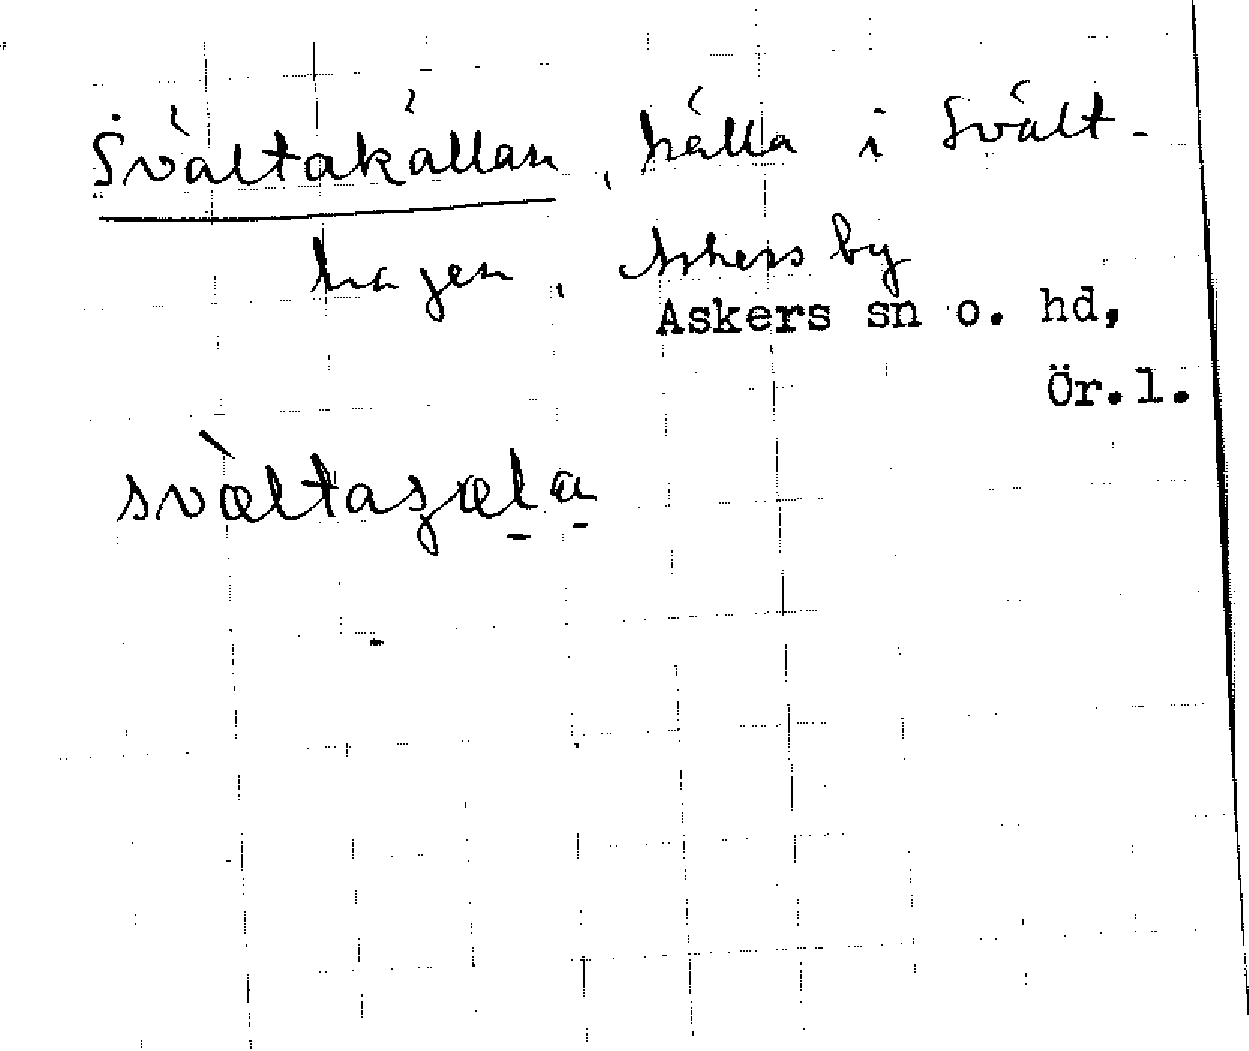 Svältakällan, källa i Svält-
hagen, Askers by
Askers sn o. hd,
Ör.l.
svæ̀ltaꞩæla